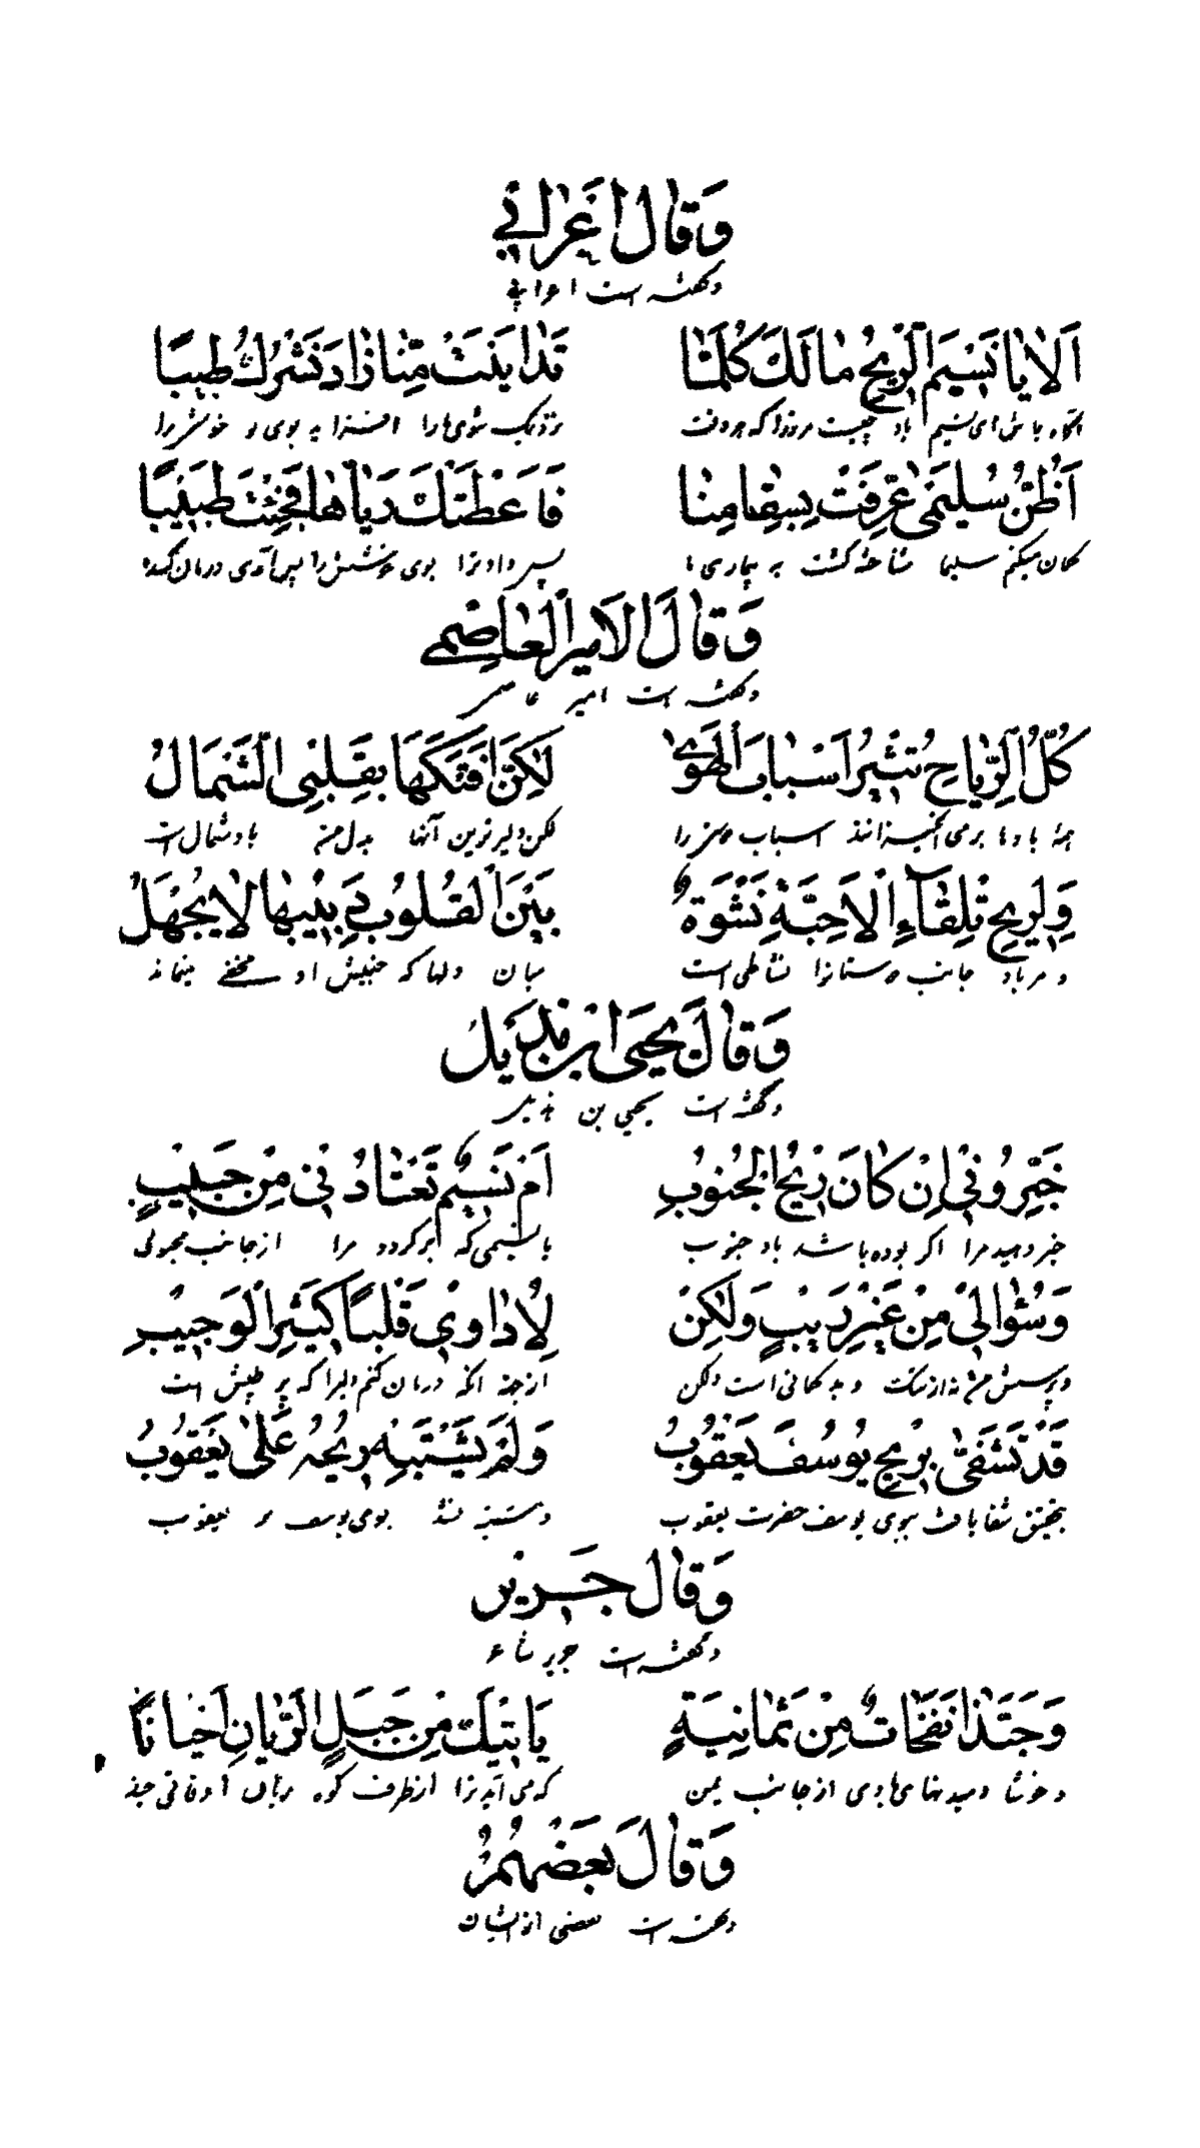 وَقَالَ اَعْرَابِي
و گفته است اعرابی
اَلَا يَا نَسِيمَ الرِّيحِ مَا لَكَ كُلَّمَا تَدَانَيْتَ مِنَّا زَادَ نَشْرُكَ طِيبًا
آگاه باش ای نسیم باد چیست مر ترا که هر وقت نزدیک شوی ما را افزاید بوی خوش را
اَظُنُّ سُلَيْمَى عُرِّفَتْ بِسِقَامِنَا فَاَعْطَتْكَ رَيَّاهَا فَجِئْتَ طَبِيبًا
گمان میکنم سلیما شناخته گشت به بیماری ما پس داد ترا بوی خوشش را پس آمدی درمان کننده
وَقَالَ الْاَمِيرُ الْعَاصِمِي
و گفته است امیر عاصمی
كُلُّ الرِّيَاحِ تُثِيرُ اَسْبَابَ الْهَوَى لٰكِنَّ اَفْتَكَهَا بِقَلْبِي الشَّمَالُ
همه بادها برمی انگیزانند اسباب عشق را لکن دلیرترین آنها بدل من باد شمال است
وَلِرِيحِ تِلْقَاءِ الْاَحِبَّةِ نَشْوَةٌ بَيْنَ الْقُلُوبِ دَبِيبُهَا لَا يُجْهَلُ
و مر باد جانب دوستان را نشاطی است میان دلها که جنبش او مخفی نمیماند
وَقَالَ يَحْيَى ابْنُ هُذَيْلٍ
و گفته است یحیی بن هذیل
خَبِّرُونِي اِنْ كَانَ رِيحُ الْجَنُوبِ اَمْ نَسِيمٌ تَعْتَادُنِي مِنْ حَبِيبٍ
خبر دهید مرا اگر بوده باشد باد جنوب یا نسیمی که برگردد مرا از جانب محبوبی
وَسُؤَالِي مِنْ غَيْرِ رَيْبٍ وَلٰكِنْ لِاُدَاوِي قَلْبًا كَثِيرَ الْوَجِيبِ
و پرسش من نه از شک و بد گمانی است و لکن از جهة آنکه درمان کنم دلی را که پر طپش است
قَدْ تَشَفَّى بِرِيحِ يُوسُفَ يَعْقُوبُ وَلَمْ يَشْتَبِهْ رِيحُهُ عَلَى يَعْقُوبَ
بتحقیق شفا یافت ببوی یوسف حضرت یعقوب و مشتبه نشد بوی یوسف بر یعقوب
وَقَالَ جَرِيرٌ
و گفته است جریر شاعر
وَحَبَّذَا نَفَحَاتٌ مِنْ يَمَانِيَةٍ يَاْتِيكَ مِنْ جَبَلِ الرَّيَّانِ اَحْيَانًا
و خوشا دمیدنهای بوی از جانب یمن که می آید ترا از طرف کوه ریان اوقاتی چند
وَقَالَ بَعْضُهُمْ
و گفته است بعضی از ایشان